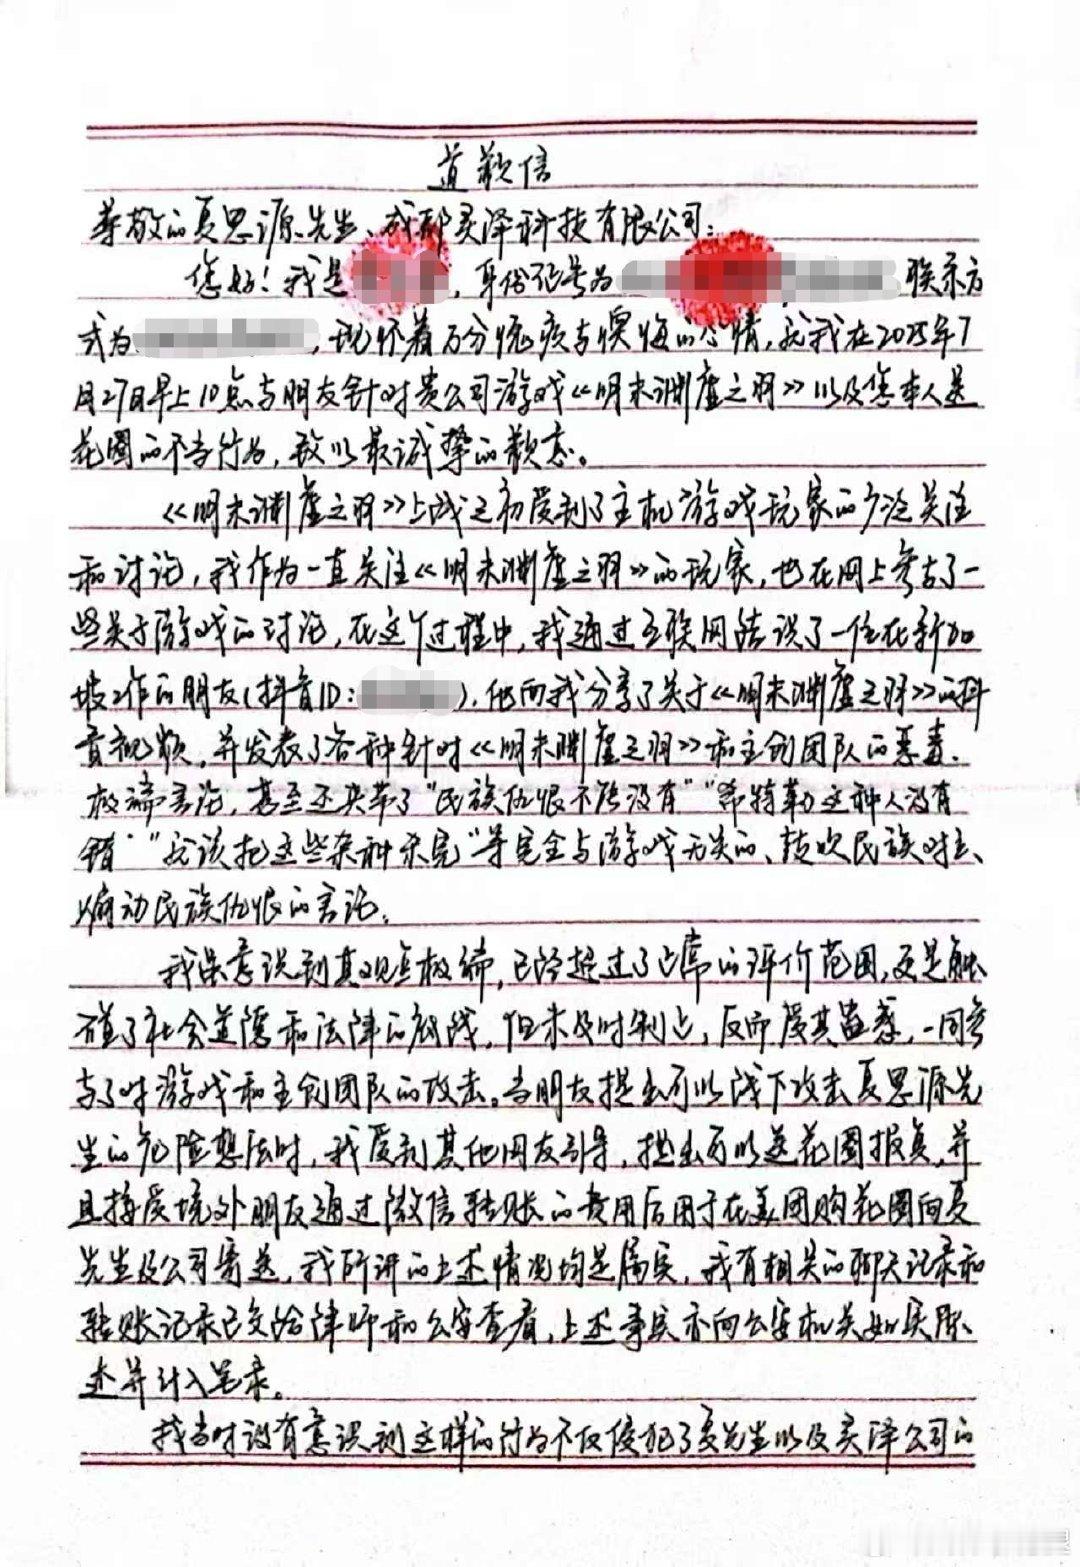 道歉信
尊敬的夏思源先生、成都灵泽科技有限公司：
您好！我是，身份证号为，联系方
式为，现怀着万分愧疚与懊悔的心情，就我在2025年7
月27日早上10点与朋友针对贵公司游戏《明末渊虚之羽》以及您本人送
花圈的不当行为，致以最诚挚的歉意。
《明末渊虚之羽》上线之初受到了主机游戏玩家的广泛关注
和讨论，我作为一直关注《明末渊虚之羽》的玩家，也在网上参与了一
些关于游戏的讨论，在这个过程中，我通过互联网结识了一位在新加
坡工作的朋友（抖音ID：），他向我分享了关于《明末渊虚之羽》的抖
音视频，并发表了各种针对《明末渊虚之羽》和主创团队的恶毒、
极端言论，甚至还夹带了"民族仇恨不能没有""希特勒这种人没有
错""就该把这些杂种杀完"等完全与游戏无关的、鼓吹民族对立、
煽动民族仇恨的言论。
我虽意识到其观点极端，已经超过了正常的评价范围，更是触
碰了社会道德和法律的底线，但未及时制止，反而受其蛊惑，一同参
与了对游戏和主创团队的攻击。当朋友提出可以线下攻击夏思源先
生的危险想法时，我受到其他网友引导，提出可以送花圈报复，并
且接受境外朋友通过微信转账的费用后用于在美团购花圈向夏
先生及公司寄送，我所讲的上述情况均是属实，我有相关的聊天记录和
转账记录已交给律师和公安查看，上述事实亦向公安机关如实陈
述并计入笔录。
我当时没有意识到这样的行为不仅侵犯了夏先生以及灵泽公司的